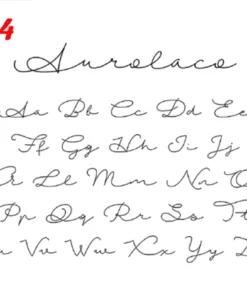 4
Aurolaco
Aa Bb Cc Dd Ee
Ff Gg Hh Ii Jj
Ll Mm Nn
Pp Qq Rr Ss Tt
Vv Ww Xx Yy